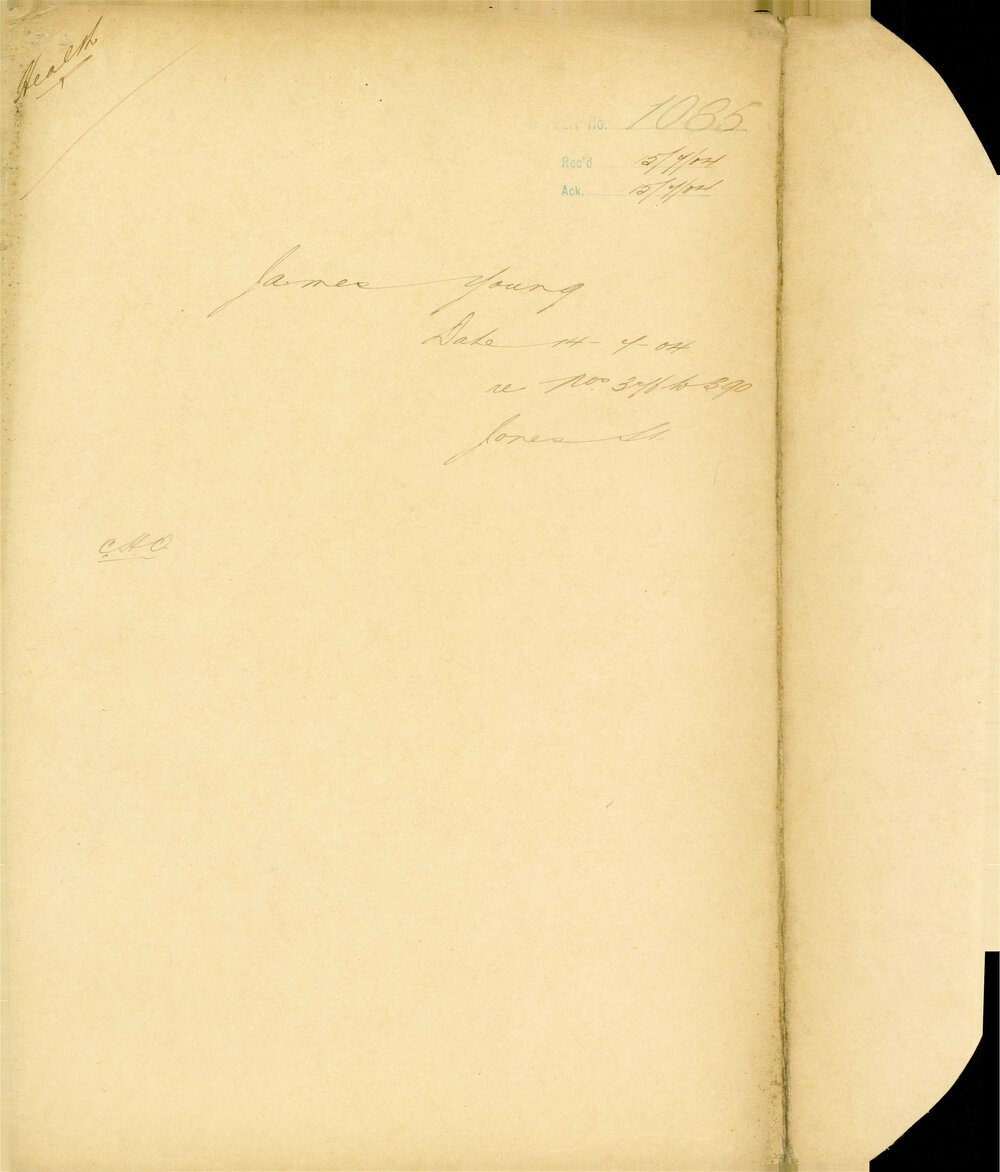 Health
No. 1085
Rec'd 15/7/04
Ack. 15/7/04
James Young
Date 14-7-04
re Nos 376 to 390
Jones St.
C.H.O.